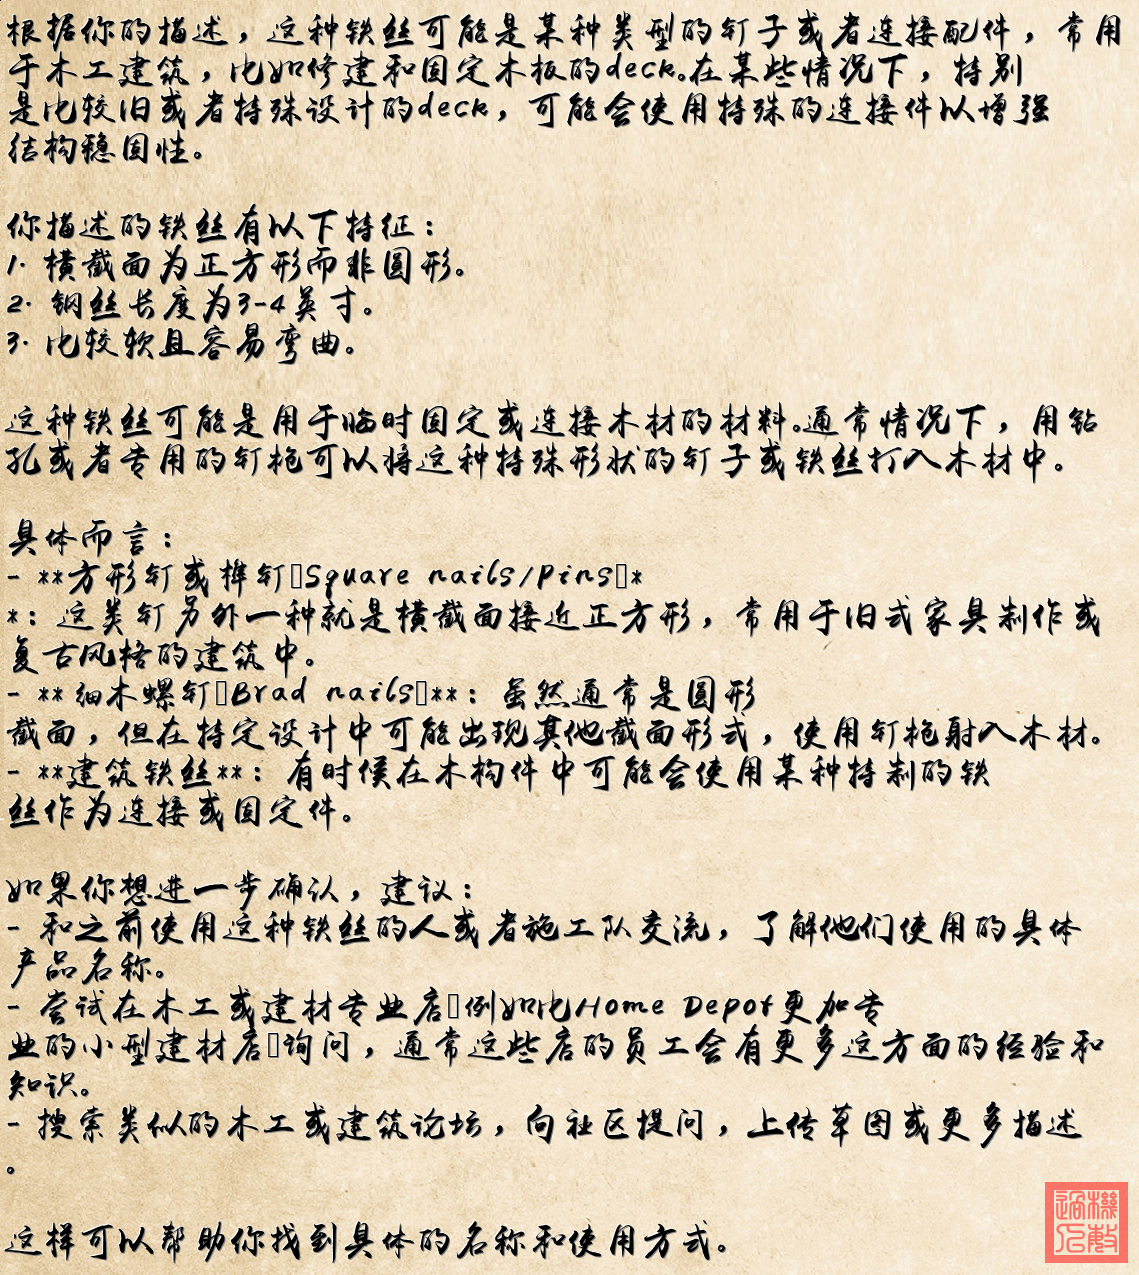 根据你的描述，这种铁丝可能是某种类型的钉子或者连接配件，常用
于木工建筑，比如修建和固定木板的deck。在某些情况下，特别
是比较旧或者特殊设计的deck，可能会使用特殊的连接件以增强
结构稳固性。
你描述的铁丝有以下特征：
1. 横截面为正方形而非圆形。
2. 钢丝长度为3-4英寸。
3. 比较软且容易弯曲。
这种铁丝可能是用于临时固定或连接木材的材料。通常情况下，用钻
孔或者专用的钉枪可以将这种特殊形状的钉子或铁丝打入木材中。
具体而言：
- **方形钉或榫钉（Square nails/Pins）*
*：这类钉另外一种就是横截面接近正方形，常用于旧式家具制作或
复古风格的建筑中。
- **细木螺钉（Brad nails）**：虽然通常是圆形
截面，但在特定设计中可能出现其他截面形式，使用钉枪射入木材。
- **建筑铁丝**：有时候在木构件中可能会使用某种特制的铁
丝作为连接或固定件。
如果你想进一步确认，建议：
- 和之前使用这种铁丝的人或者施工队交流，了解他们使用的具体
产品名称。
- 尝试在木工或建材专业店（例如比Home Depot更加专
业的小型建材店）询问，通常这些店的员工会有更多这方面的经验和
知识。
- 搜索类似的木工或建筑论坛，向社区提问，上传草图或更多描述
。
这样可以帮助你找到具体的名称和使用方式。